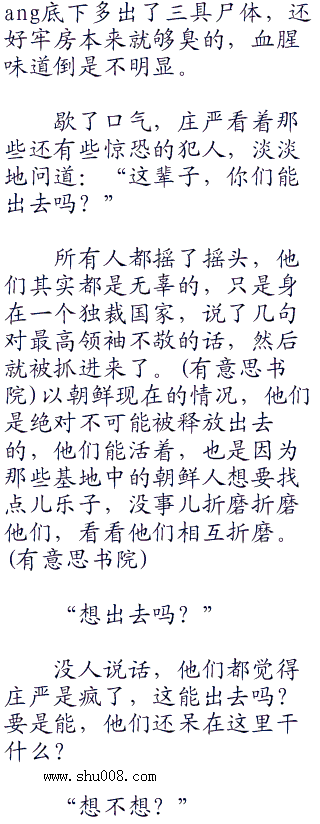 ang底下多出了三具尸体，还
好牢房本来就够臭的，血腥
味道倒是不明显。
歇了口气，庄严看着那
些还有些惊恐的犯人，淡淡
地问道：“这辈子，你们能
出去吗？”
所有人都摇了摇头，他
们其实都是无辜的，只是身
在一个独裁国家，说了几句
对最高领袖不敬的话，然后
就被抓进来了。(有意思书
院)以朝鲜现在的情况，他们
是绝对不可能被释放出去
的，他们能活着，也是因为
那些基地中的朝鲜人想要找
点儿乐子，没事儿折磨折磨
他们，看看他们相互折磨。
(有意思书院)
“想出去吗？”
没人说话，他们都觉得
庄严是疯了，这能出去吗？
要是能，他们还呆在这里干
什么？
www.shu008.com
“想不想？”